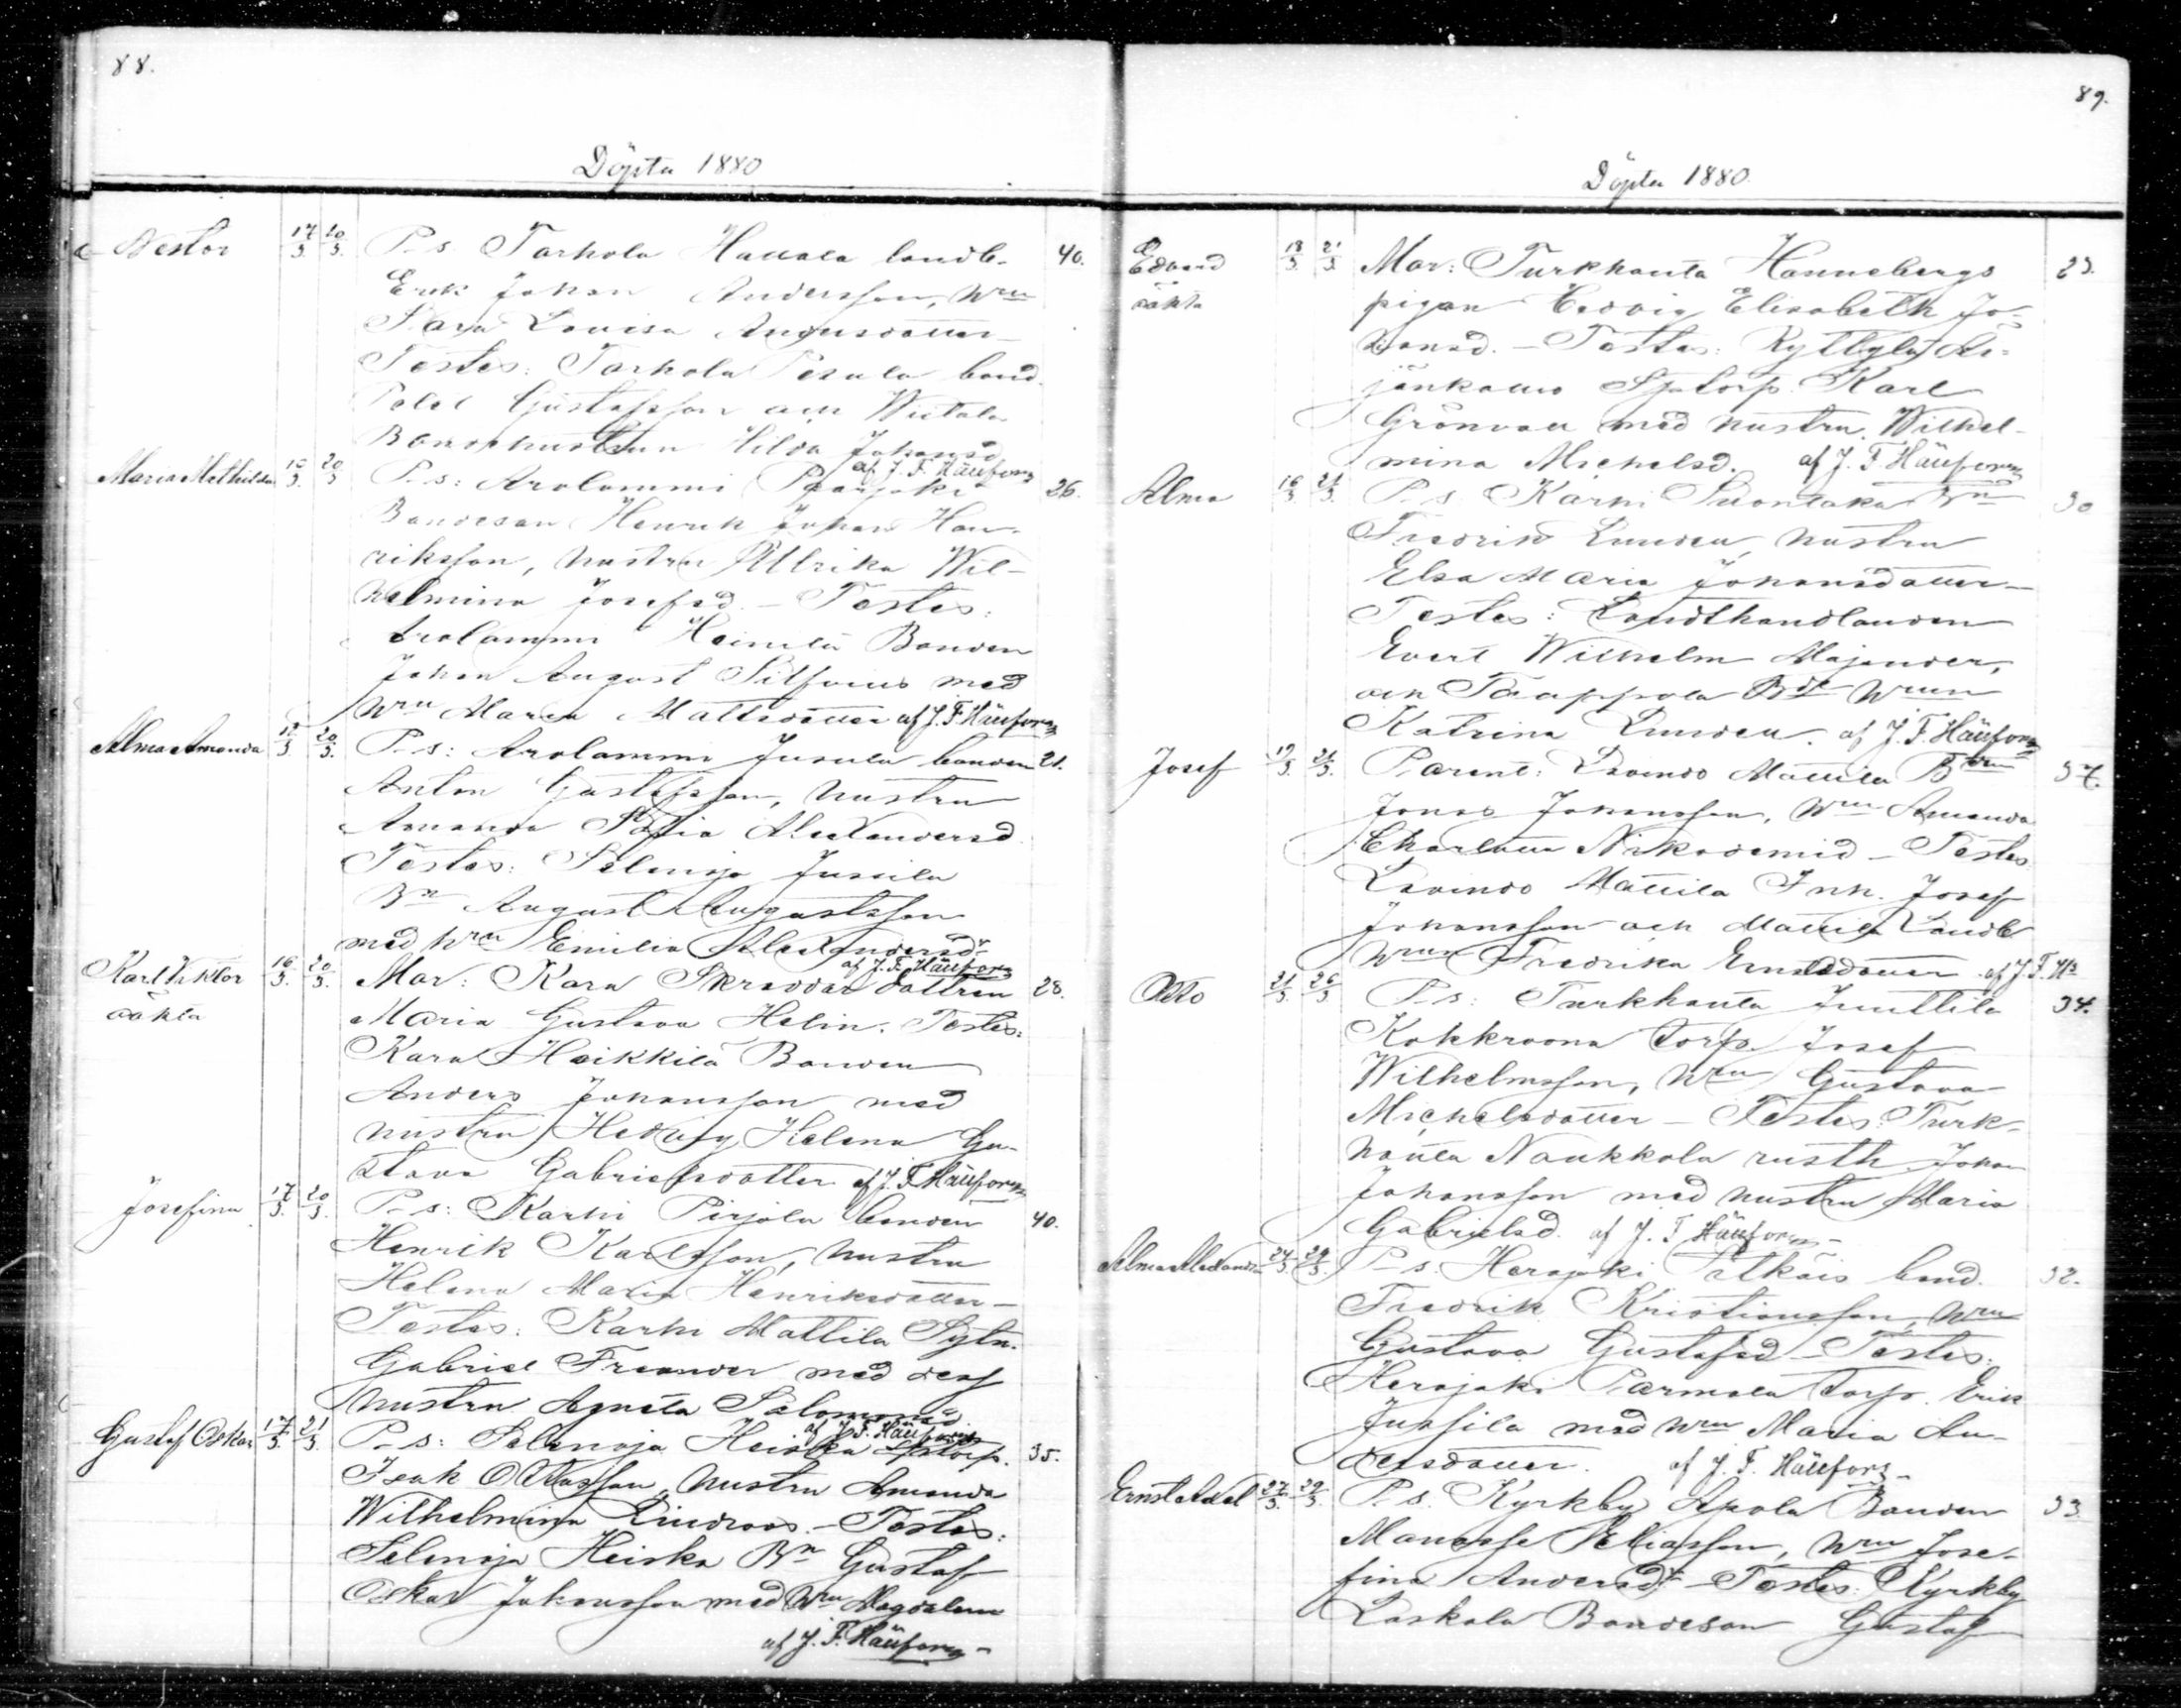 88.
Döpta 1880
Nestor 17/3. 20/3. P-s. Tarhola landb. 40.
Erik Johan Andersson, hru
Sara Lovisa
Testes: Tarhola bond.
Gustafsson och
Hilda Johansd.
af J. F. Hällfors
Maria Mathilda 20/3 P-s: Arolammi 26.
Bondeson Henrik Johan Hen-
riksson, hustru Ulrika Wil-
helmina Josefsd. - Testes:
Arolammi Heinilä Bonden
Johan August med
hru Maria Mattsdotter af J. F. Hällfors
Alma Amanda 18/3 20/3. P-s: Arolammi Jusula bonden 21.
Anton Gustafsson, hustru
Amanda Sofia Alexandersd.
Testes: Selenoja Jussila
Bn August Augustsson
med hru Emilia Alexandersdr
af J. F. Hällfors
Karl Viktor 16/3. 20/3. Mar: Kara Skreddar dottren 28.
oäkta Maria Gustava Helin. Testes:
Kara Heikkilä Bonden
Anders Johansson med
hustru Hedvig Helena Gu-
stava Gabrielsdotter af J. F. Hällfors
Josefina 17/3. 20/3. P-s: Karhi Pirjola bonden 40.
Henrik Karlsson, hustru
Helena Maria Henriksdotter -
Testes: Karhi Mattila Sytn.
Gabriel med dess
hustru Agneta Salomonsd.
af J. F. Hällfors
Gustaf Oskar 17/3. 21/3. P-s: Selenoja Heiska 35.
Isak hustru Amanda
Wilhelmina Lindroos. - Testes:
Selenoja Heiska Bn Gustaf
Oskar Johansson med hru Magdalena
af J. F. Hällfors -
89.
Döpta 1880.
Edvard 18/3 21/3 Mar: Turkhauta Hannebergs 23.
oäkta pigan Hedvig Elisabeth Jo-
hansd. - Testes: Ryttylä
Karl
Grönvall med hustru Wilhel-
mina Michelsd. af J. F. Hällfors
Alma 16/3 21/3. P-s. Karhi Bn 30
Fredrik Lunden, hustru
Elsa Maria Johansdotter -
Testes: Landthandlanden
Evert Wilhelm Majander,
och hrun
Katrina Lunden. af J. F. Hällfors
Josef 19/3. 21/3. Parent: Mattila 37.
Jonas Johansson, hru Amanda
Charlotta Nikodemid - Testes
Mattila Inh. Josef
Johansson och Mattila Landb
hrun Fredrika Ernstdotter af J. F. Hfs
Otto 21/3. 26/3 P-s: Turkhauta Junttila 34.
Kokkroona torp. Josef
Wilhelmsson, hru Gustava
Michelsdotter - Testes: Turk-
hauta Naukkola rusth. Johan
Johansson med hustru Maria
Gabrielsd. af J. F. Hällfors -
Alma Alexandra 24/3. 29/3. P-s. Herajoki bond. 32.
Fredrik Kristiansson, hru
Gustava Gustafsd - Testes:
Herajoki Parmala torp. Erik
Jussila med hru Maria An-
dersdotter. af J. F. Hällfors -
Ernst Axel 27/3. 29/3. P-s. Kyrkby Apola Bonden 33
Manasse Eliasson, hru Jose-
fina Andersdr - Testes: Kyrkby
Laskala Bondeson Gustaf